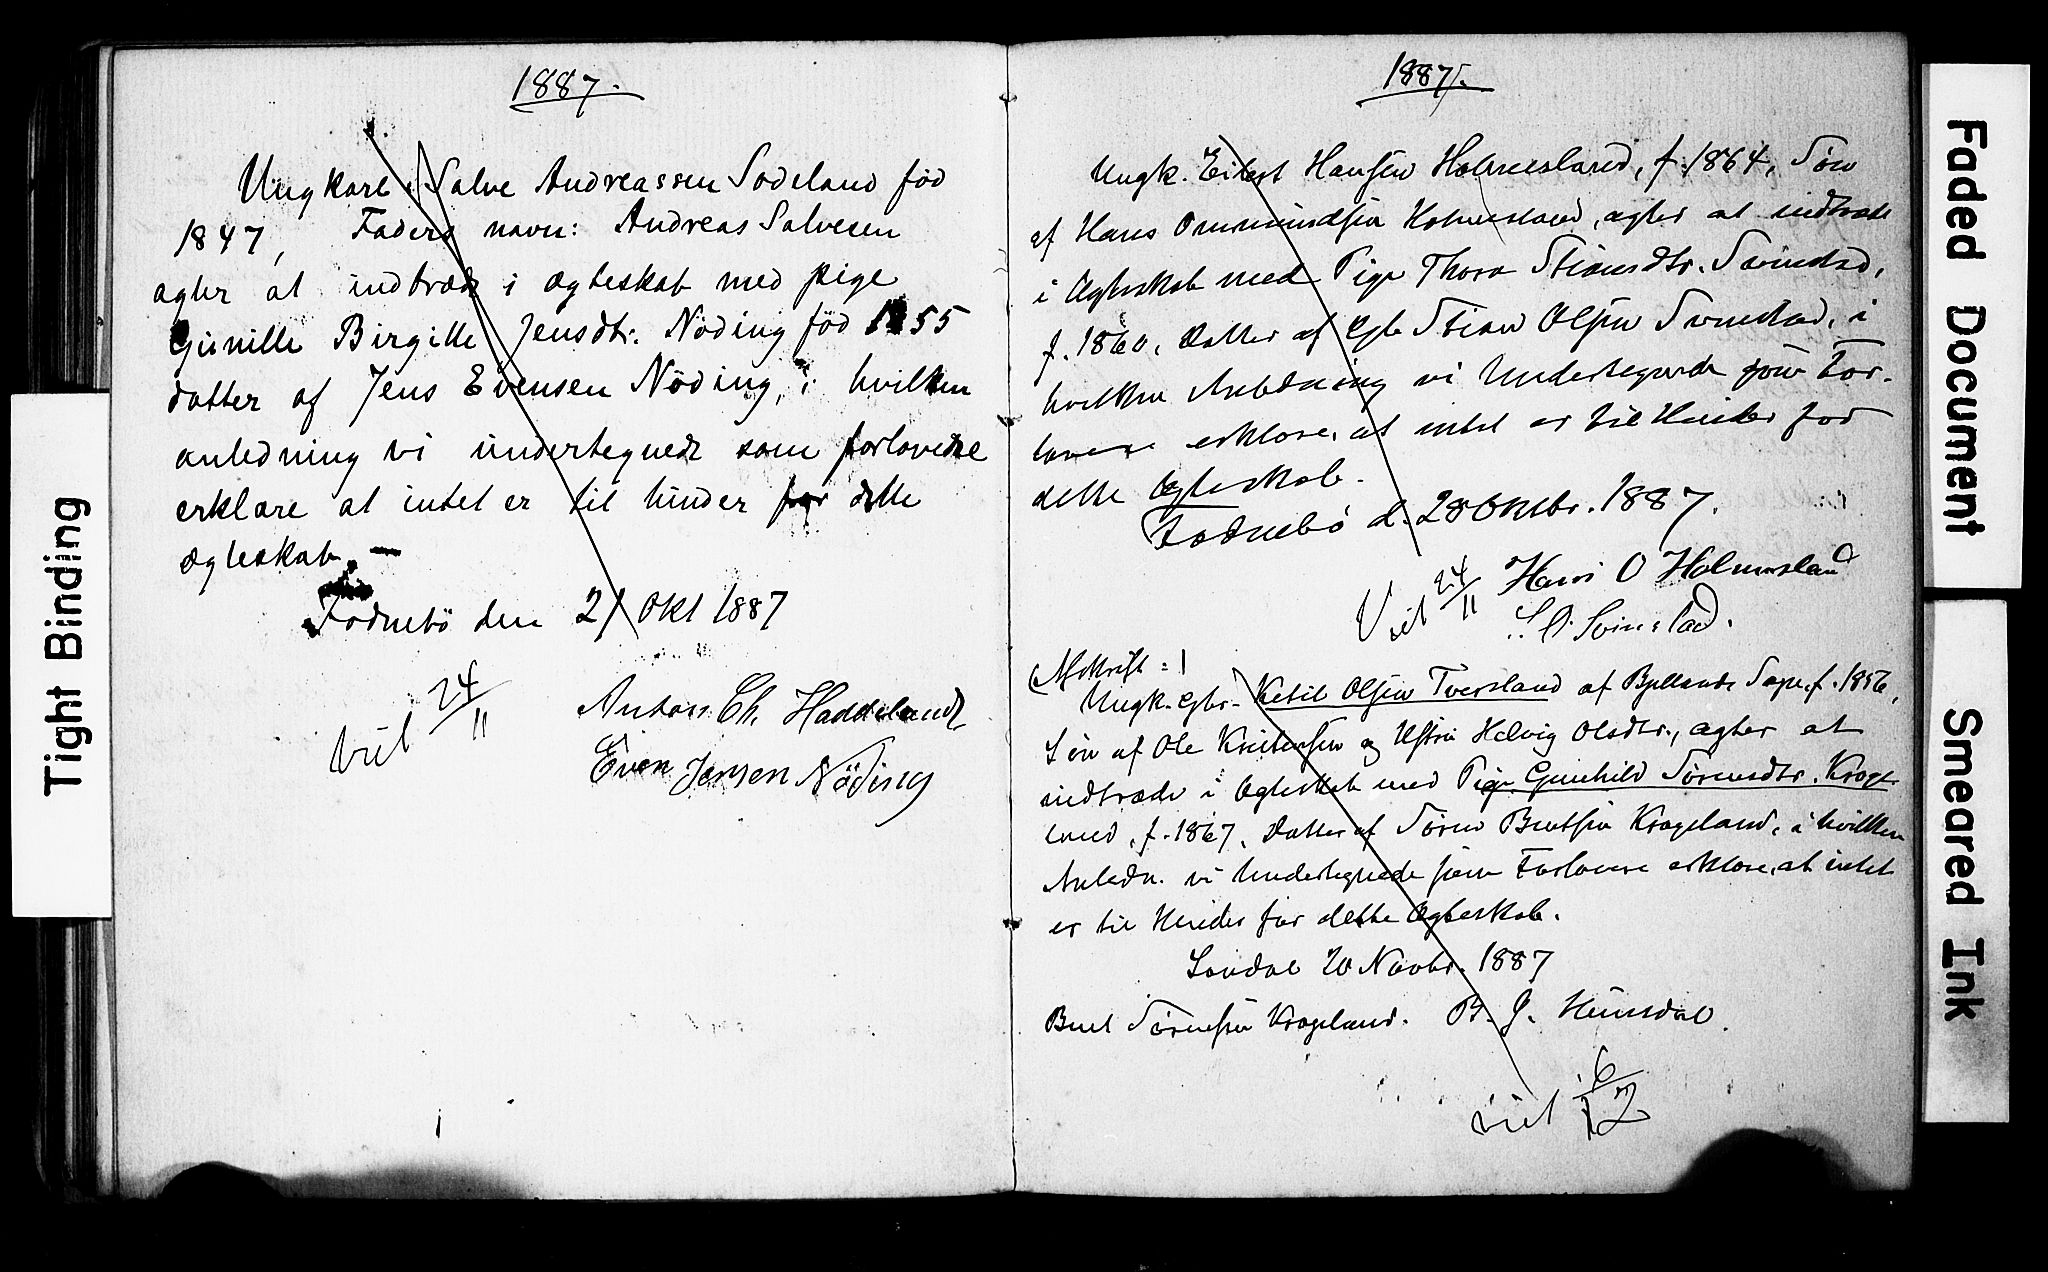 1887.
Ungkarl Salve Andreassen Sodeland fød
1847, Faders navn: Andreas Salvesen
agter at indtræde i ægteskab med pige
Gunille Birgitte Jensdtr: Nöding fød 1855
datter af Jens Evensen Nöding, i hvilken
anledning vi undertegnede som forlovere
erklære at intet er til hinder for dette
ægteskab. —
Fodnebö den 21 Okt 1887
Anton Ch. Haddeland
Even Jensen Nöding
viet 24/11
1887.
Ungk. Eilert Hansen Holmesland, f. 1864, Søn
af Hans Ommundsen Holmesland, agter at indtræde
i Ægteskab med Pige Thora Stiansdtr. Svinestad,
f. 1860, Datter af Gbr Stian Olsen Svinestad, i
hvilken Anledning vi Undertegnede som For-
lovere erklære, at intet er til Hinder for
dette Ægteskab.
Fodnebö d. 28 Oktbr. 1887.
Hans O Holmesland
S. O. Svinestad.
Viet 24/11
Afskrift:
Ungk. Gbr. Ketil Olsen Tveesland af Bjellands Sogn f. 1856,
Søn af Ole Kristensen og Hustru Helvig Olsdtr., agter at
indtræde i Ægteskab med Pige Gunhild Sørensdtr. Kroge-
land, f. 1867, Datter af Søren Bentsen Krogeland, i hvilken
Anledn. vi Undertegnede som Forlovere erklære, at intet
er til Hinder for dette Ægteskab.
20 Novbr. 1887
Bent Sørensen Krogeland. B. J. Heimsdal.
viet 6/12
Tight Binding
Faded Document
Smeared Ink